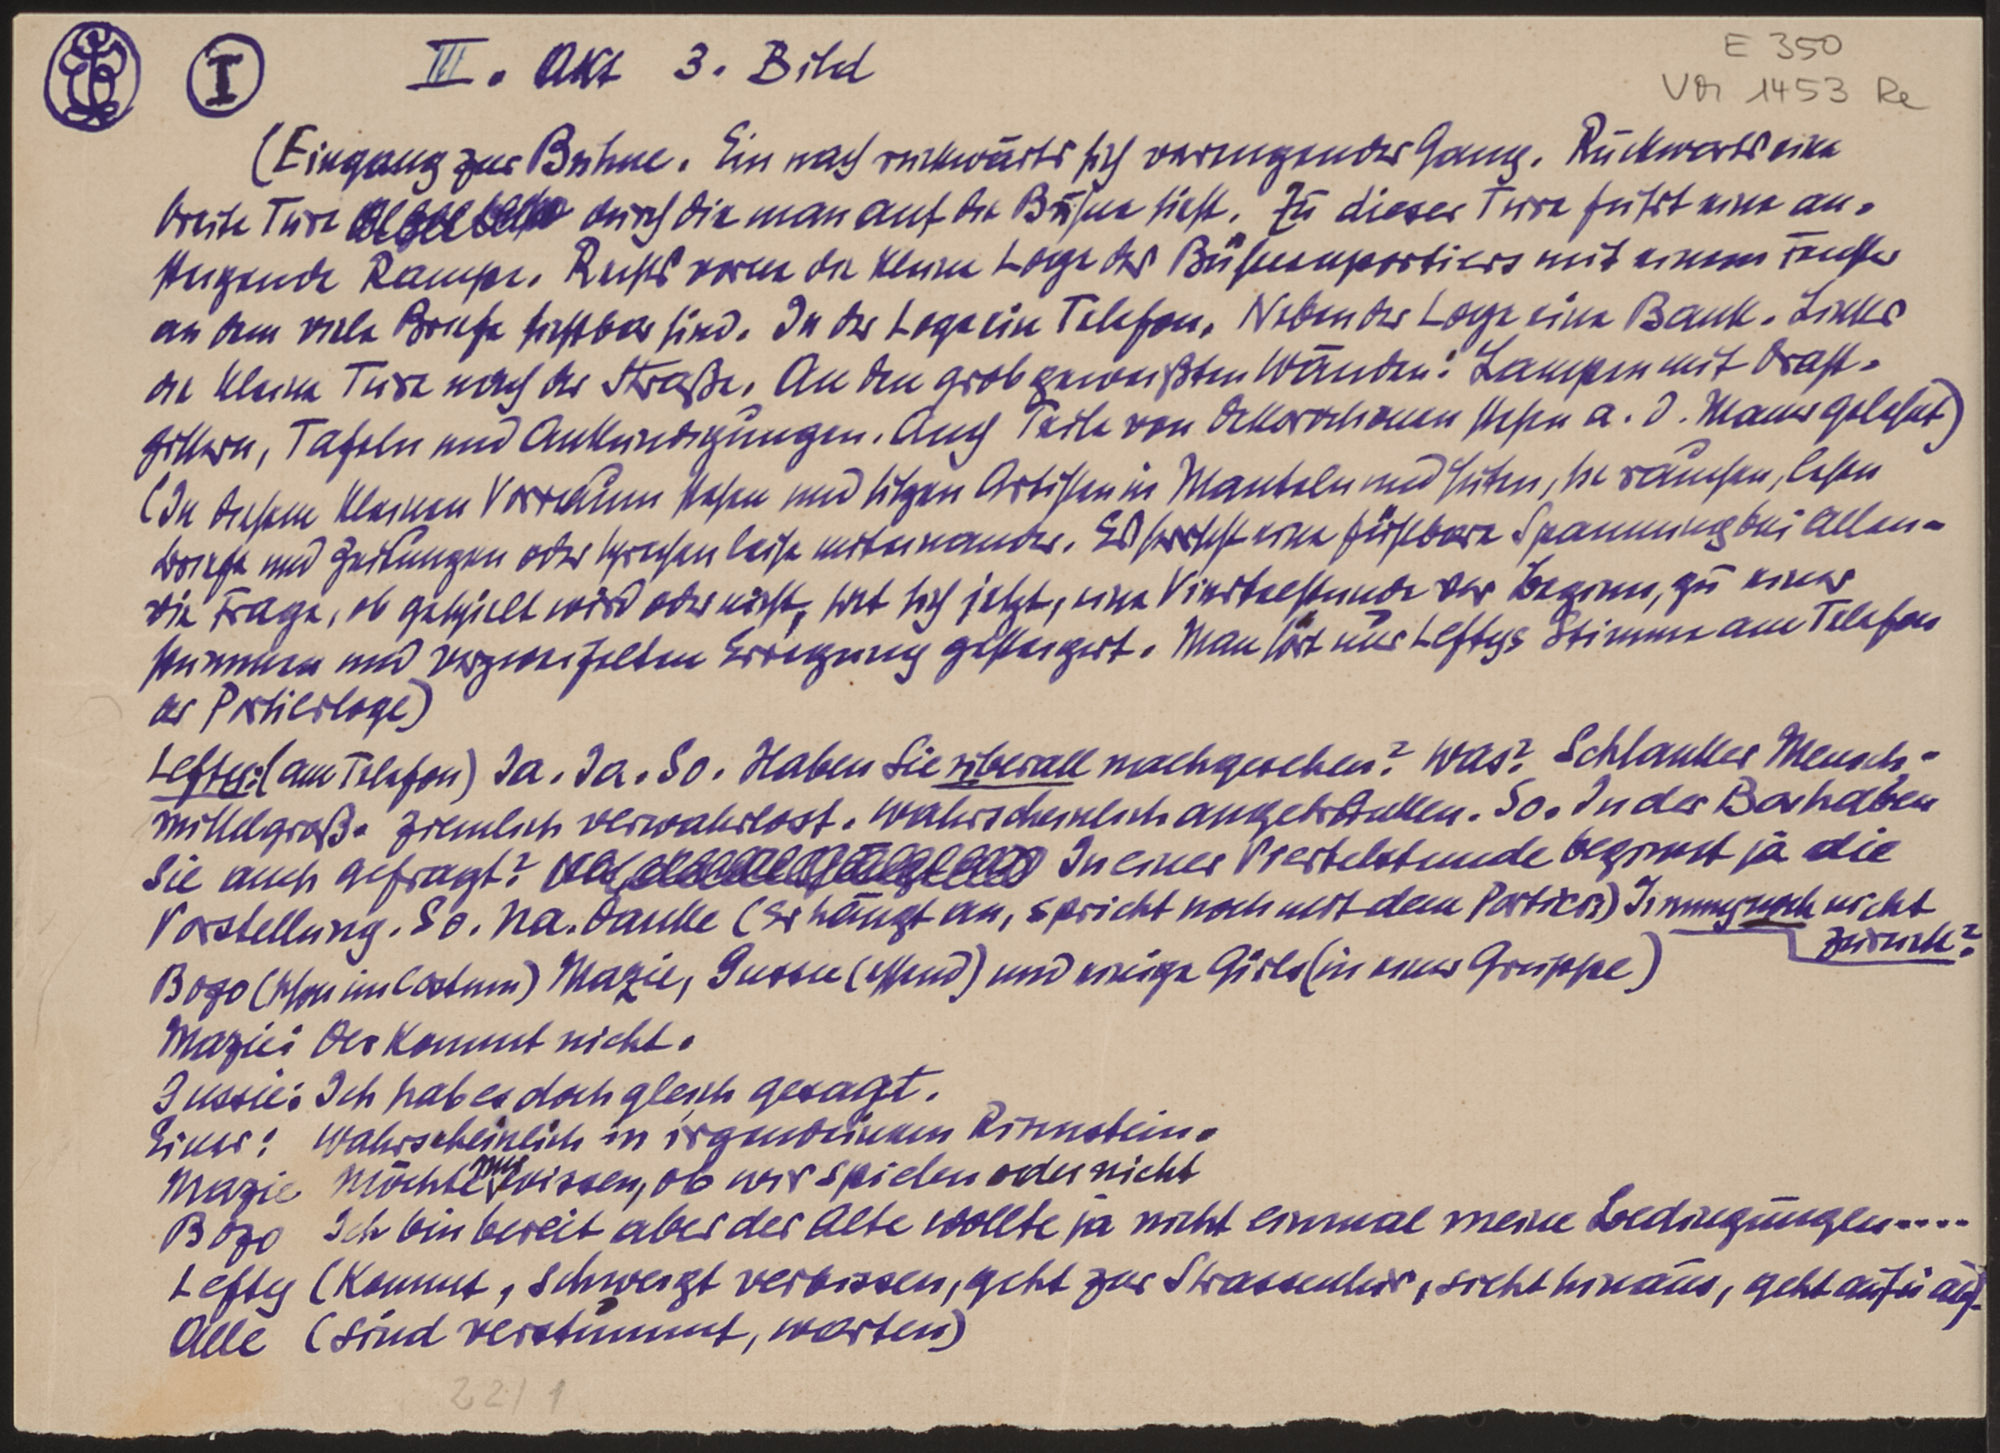 I
III. Akt 3. Bild
E 350
Vor 1453 Re
(Eingang zur Bühne. Ein nach rückwärts sich verengender Gang. Rückwärts eine
breite Türe durch die man auf die Bühne sieht. Zu dieser Türe führt eine an-
steigende Rampe. Rechts vorne die kleine Loge des Bühnenportiers mit einem Fenster
an dem viele Briefe sichtbar sind. In der Loge ein Telefon. Neben der Loge eine Bank. Links
die kleine Türe nach der Straße. An den grob geweißten Wänden: Lampen mit Draht-
gittern, Tafeln und Ankündigungen. Auch Teile von Dekorationen stehen a. d. Mauer gelehnt)
(In diesem kleinen Vorraum stehen und sitzen Artisten in Mänteln und Hüten, sie rauchen, lesen
Briefe und Zeitungen oder sprechen leise miteinander. Es herrscht eine fühlbare Spannung bei Allen-
die Frage, ob gespielt wird oder nicht, hat sich jetzt, eine Viertelstunde vor Beginn, zu einer
stummen und verzweifelten Erregung gesteigert. Man hört nur Leftys Stimme am Telefon
der Portierloge)
Lefty: (am Telefon) Ja. Ja. So. Haben Sie überall nachgesehen? Was? Schlanker Mensch-
mittelgroß. Ziemlich verwahrlost. Wahrscheinlich angetrunken. So. In der Bar haben
Sie auch gefragt? In einer Viertelstunde beginnt ja die
Vorstellung. So. Na. Danke (Er hängt an, spricht noch mit dem Portier) Immer noch nicht
zurück?
Bozo (schon im Costüm) Mazie, Gussie (essend) und einige Girls (in einer Gruppe)
Mazie: Der kommt nicht.
Gussie: Ich hab es doch gleich gesagt.
Einer: Wahrscheinlich in irgendeinem Rinnstein.
Mazie Möchte nur wissen, ob wir spielen oder nicht
Bozo Ich bin bereit aber der Alte wollte ja nicht einmal meine Bedingungen....
Lefty (Kommt, schweigt verbissen, geht zur Strassentür, sieht hinaus, geht auf u. ab).
Alle (sind verstummt, warten)
22/1